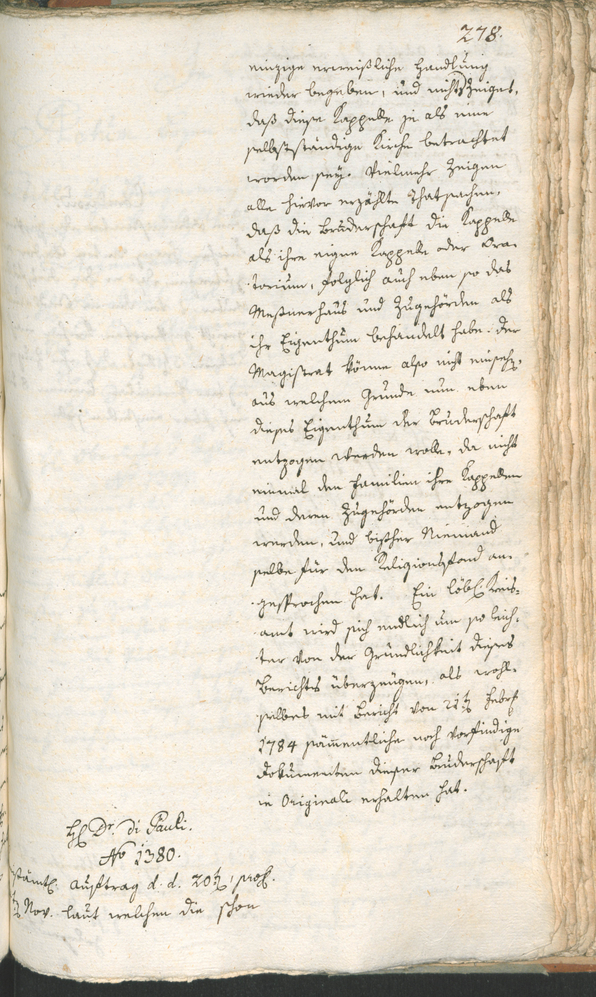 278.
einzige erweißliche Handlung
wieder begeben, und nicht zeiget,
daß diese Kappelle je als eine
selbstständige Kirche betrachtet
worden sey. Vielmehr zeigen
alle hievor erzählte Thatsachen,
daß die Bruderschaft die Kappelle
als ihre eigne Kappelle oder Ora-
torium, folglich auch eben so das
Meßnerhaus und Zugehörden als
ihr Eigenthum behandelt habe. Der
Magistrat könne also nicht einsehen,
aus welchem Grunde nun eben
dieses Eigenthum der Bruderschaft
entzogen werden wolle, da nicht
einmal den Familien ihre Kappellen
und deren Zugehörden entzogen
werden, und bisher Niemand
selbe für den Religionsfond an-
gesprochen hat. Ein löbl. Kreis-
amt wird sich endlich um so leich-
ter von der Gründlichkeit dieses
Berichts überzeugen, als wohl-
selbes mit Bericht von 21t Febr
1784 sämmentliche noch vorfindige
Dokumenten dieser Bruderschaft
in Originali erhalten hat.
H Dr. di Pauli.
No 1380.
Auftrag d. d. 20t
Nov. laut welchen die schon